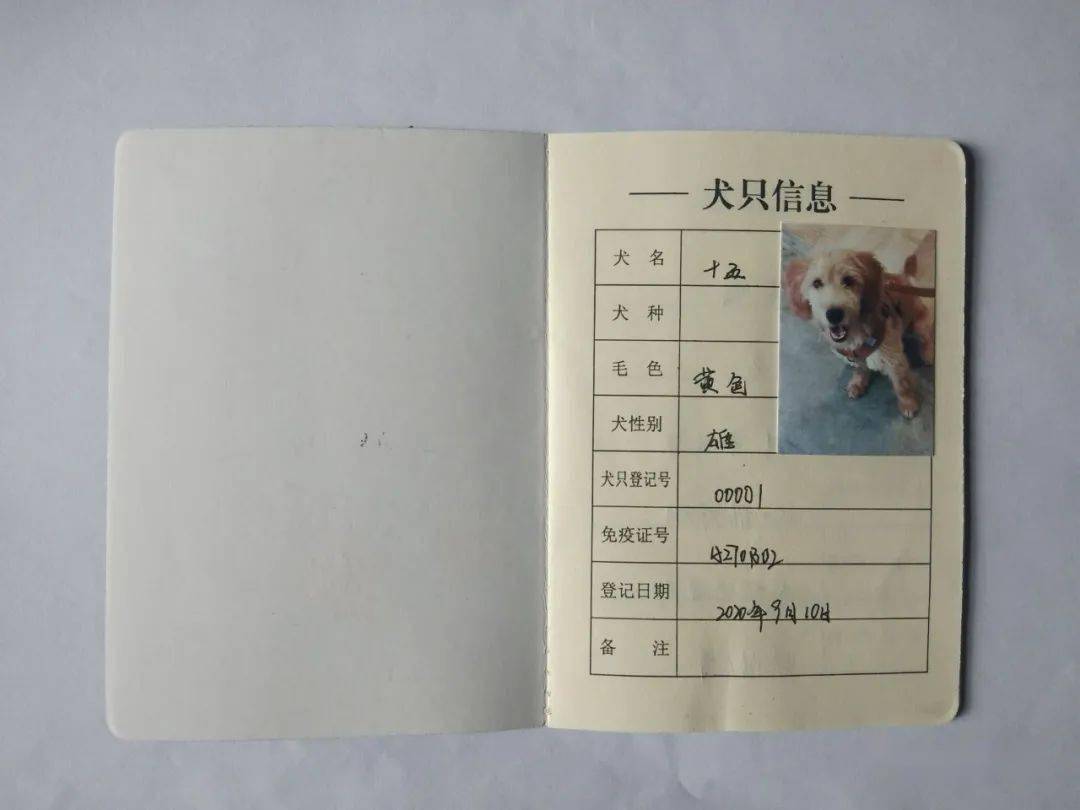 犬只信息
犬 名 十五
犬 种
毛 色 黄色
犬性别 雄
犬只登记号 00001
免疫证号
登记日期 2020年9月10日
备 注